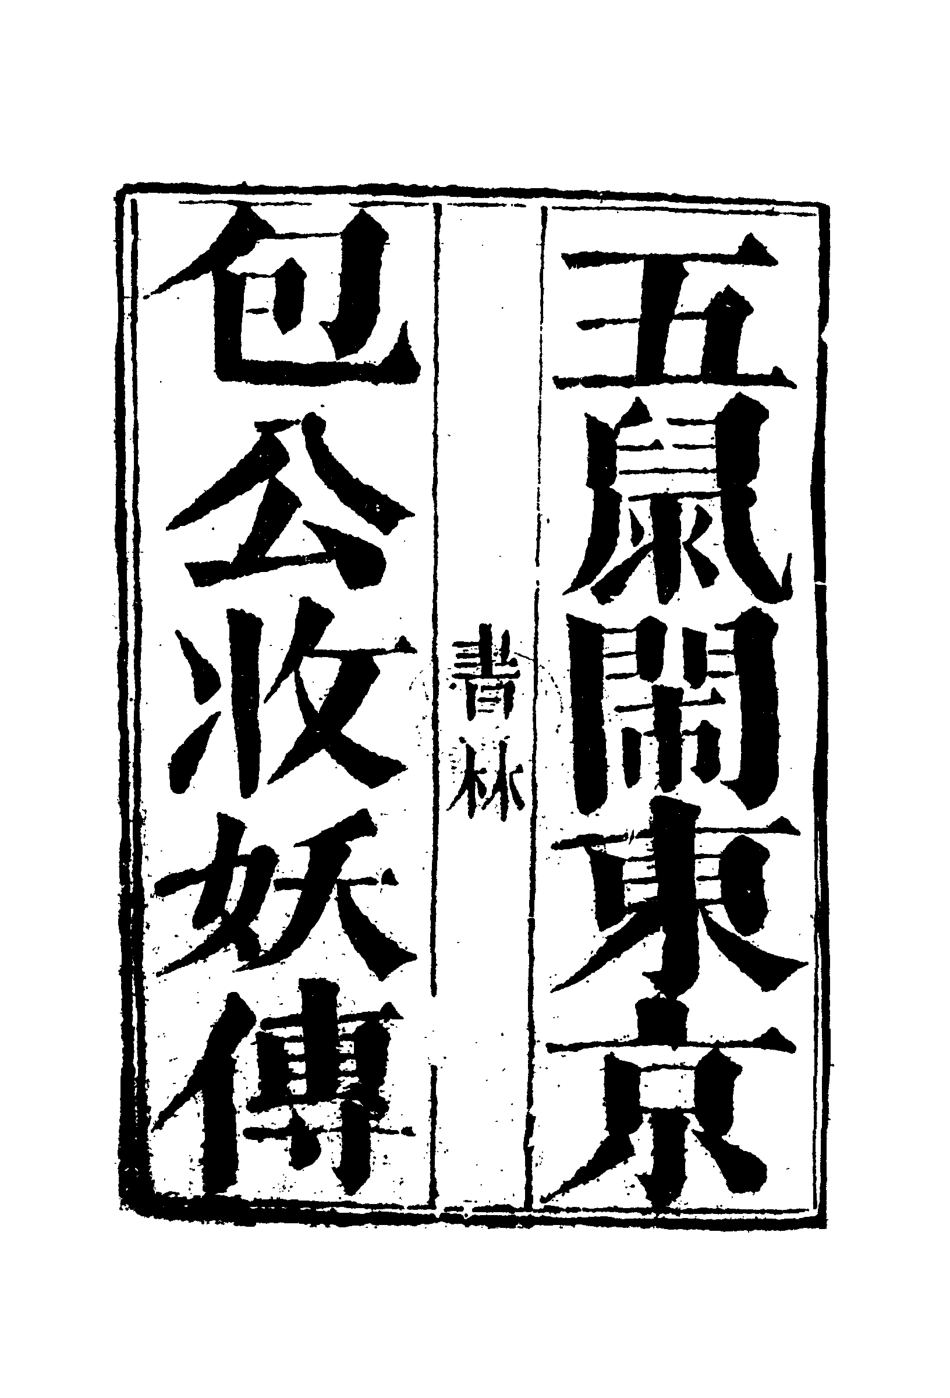 五鼠鬧東京
書林
包公收妖傳